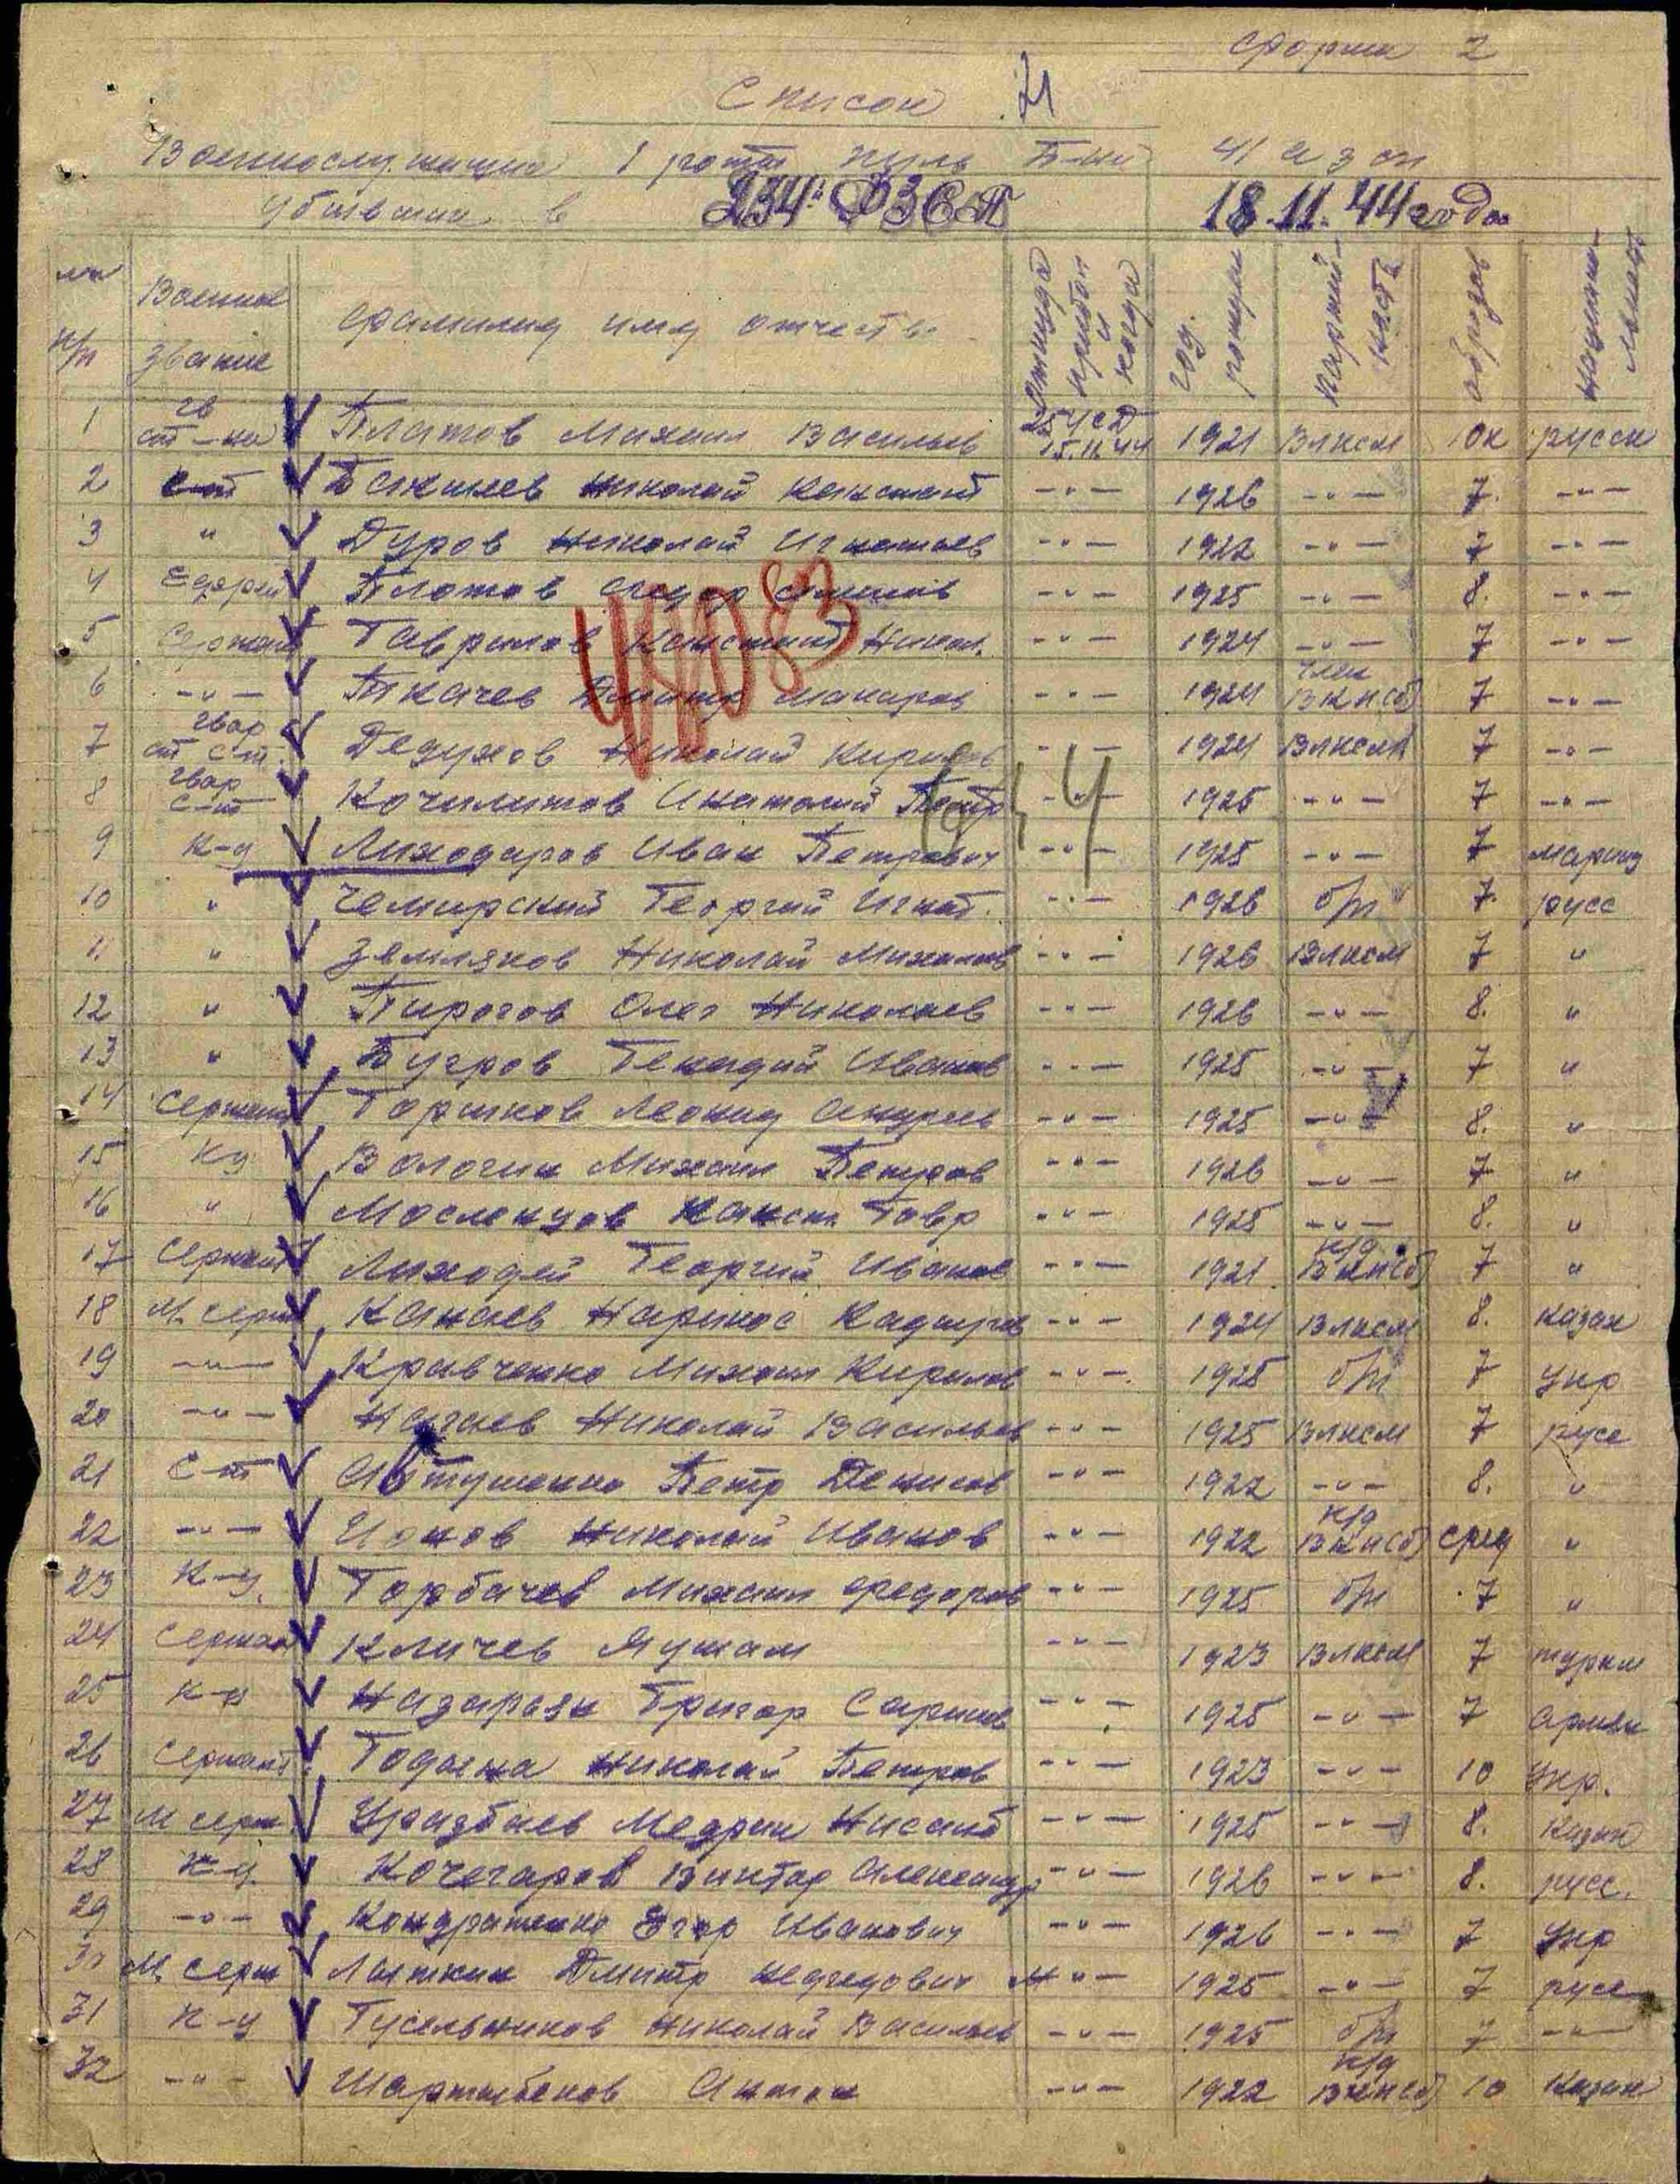 Форма 2
Список
Военнослужащих 1 роты пуль Б-на 41 а з сп
убывших в 234 АЗСП 18.11.44 года
Военное звание Фамилия имя отчество Откуда прибыл и когда год рожден Партийность образов национальность
1 гв ст-на Платов Михаил Васильев 25.11.44 1921 Влксм 10к русск
2 с-т Николай Констант -"- 1926 -"- 7 -"-
3 " Дуров Николай Игнатьев -"- 1922 -"- 7 -"-
4 Ефрей Платов Федор -"- 1925 -"- 8. -"-
5 Сержант Гаврилов Констант Никол. -"- 1924 -"- 7 -"-
6 -"- Ткачев Дмитр Макаров -"- 1924 член ВКП(б) 7 -"-
7 гвар ст с-т. Дедухов Николай Кирил -"- 1924 Влксм 7 -"-
8 гвар с-т Анатолий Петр -"- 1925 -"- 7 -"-
9 К-ц Лиходаров Иван Петрович -"- 1925 -"- 7
10 " Чемирский Георгий Игнат. -"- 1926 б/п 7 русс
11 " Земляков Николай Михайлов -"- 1926 Влксм 7 "
12 " Пирогов Олег Николаев -"- 1926 -"- 8. "
13 " Бугров Генадий Иванов -"- 1925 -"- 7 "
14 Сержант Горшков Леонид Андреев -"- 1925 -"- 8. "
15 К-ц Вологин Михаил -"- 1926 -"- 7 "
16 " Масленцов Конст Гавр -"- 1925 -"- 8. "
17 Сержант Лиходей Георгий Иванов -"- 1921 к/д ВКП(б) 7 "
18 М. серж Канаев Кадыров -"- 1924 Влксм 8. Казах
19 -"- Кравченко Михаил Кирилов -"- 1925 б/п 7 укр
20 -"- Нагаев Николай Васильев -"- 1925 Влксм 7 русс
21 с-т Петр Денисов -"- 1922 -"- 8. "
22 -"- Ионов Николай Иванов -"- 1922 к/д ВКП(б) сред "
23 К-ц. Горбачев Михаил Федоров -"- 1925 б/п 7 "
24 Сержан Кличев -"- 1923 Влксм 7 туркм
25 к-ц Назарьян Григор Саркис -"- 1925 -"- 7 армян
26 Сержант. Николай Петров -"- 1923 -"- 10 укр.
27 М серж Уразбаев -"- 1925 -"- 8. Казах
28 К-ц. Кочегаров Виктор Александр -"- 1926 -"- 8. русс.
29 -"- Кондратенко Егор Иванович -"- 1926 -"- 7 укр
30 М. серж Лапшин Дмитр -"- 1925 -"- 7 русс
31 К-ц Гусельников Николай Васильев -"- 1925 б/п 7 -"-
32 -"- -"- 1922 к/д ВКП(б) 10 Казах